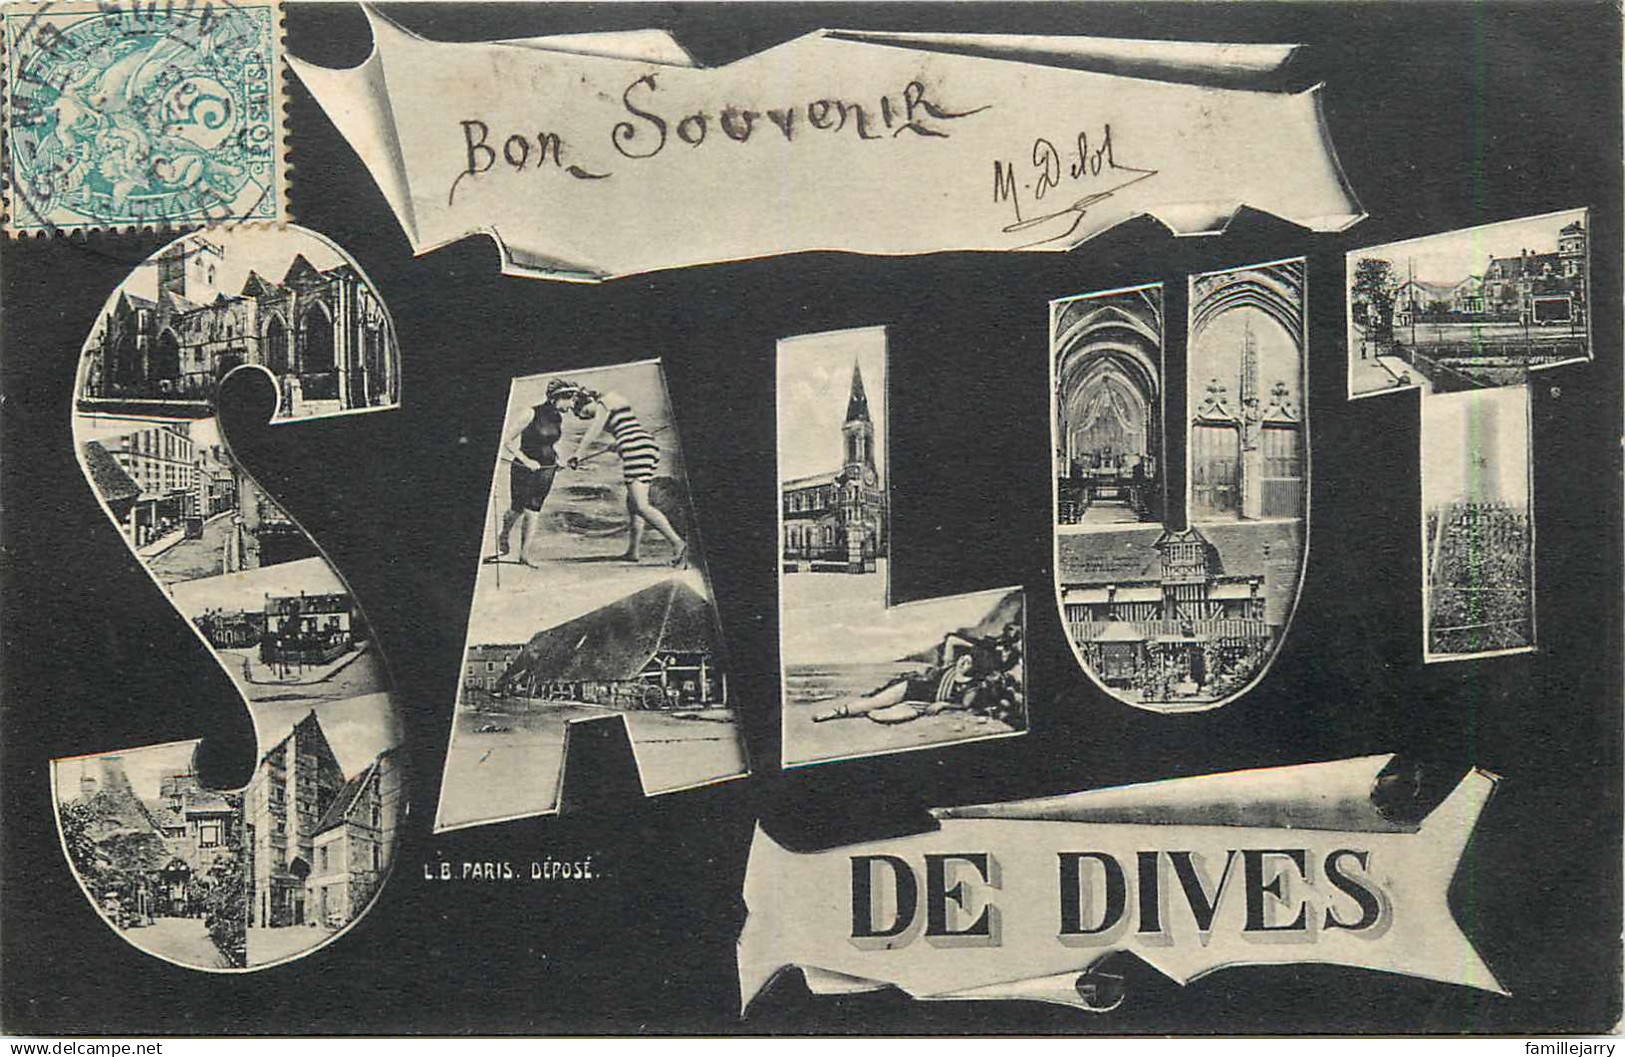 5
POSTES
Bon Souvenir
M. Delot
SALUT
L.B. PARIS. DÉPOSÉ.
DE DIVES
https://www.delcampe.net
famillejarry